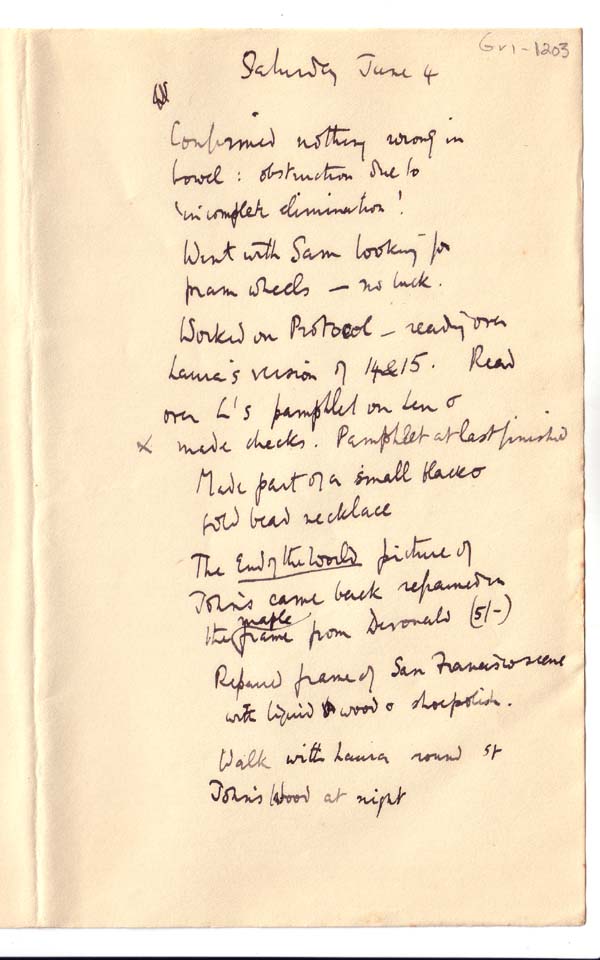 Gri-1203
Saturday June 4
Confirmed nothing wrong in
bowel : obstruction due to
'incomplete elimination'.
Went with Sam looking for
pram wheels — no luck.
Worked on Protocol – reading over
Laura's version of 14&15. Read
over L's pamphlet on Len &
x made checks. Pamphlet at last finished
Made part of a small black &
gold bead necklace
The End of the World picture of
John's came back reframed in
maple
the frame from Devonald (5/-)
Repaired frame of San Francisco scene
with liquid wood & shoepolish.
Walk with Laura round St
John's Wood at night